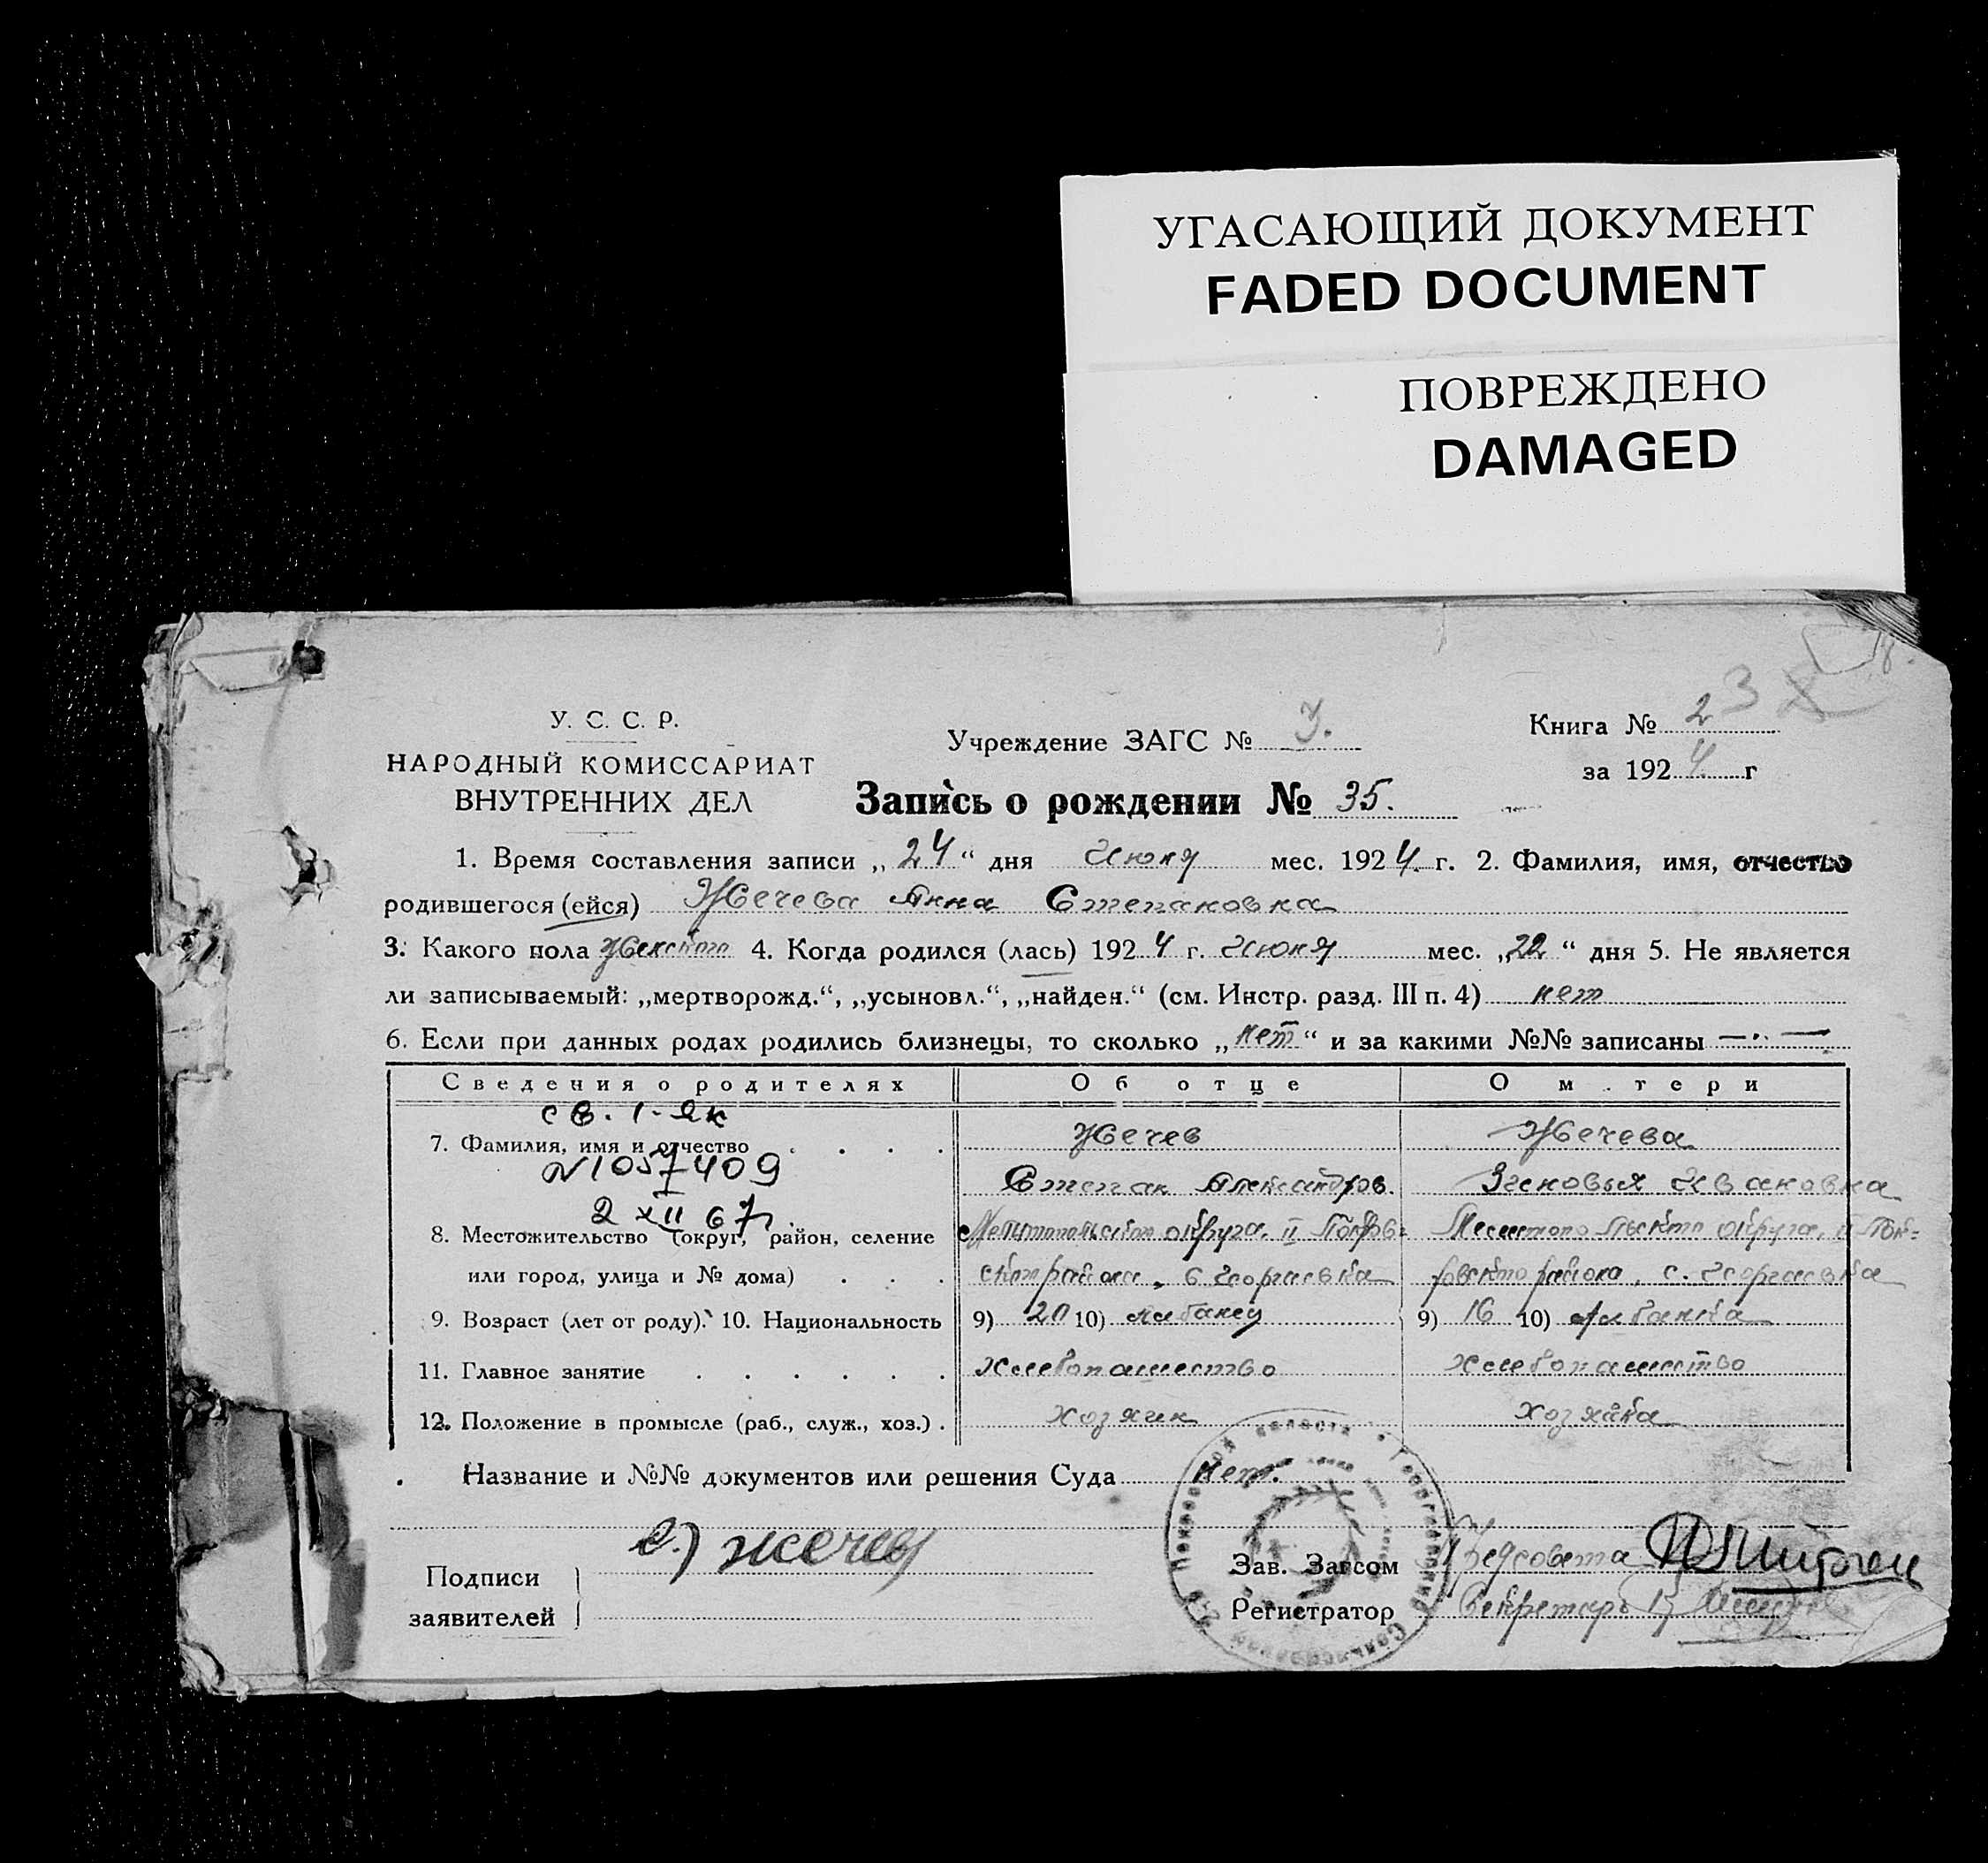 УГАСАЮЩИЙ ДОКУМЕНТ
FADED DOCUMENT
ПОВРЕЖДЕНО
DAMAGED
У. С. С. Р.
НАРОДНЫЙ КОМИССАРИАТ
ВНУТРЕННИХ ДЕЛ
Учреждение ЗАГС № 3.
Книга № 2
за 1924 г
Запись о рождении № 35.
1. Время составления записи „24“ дня Июня мес. 1924 г. 2. Фамилия, имя, отчество
родившегося (ейся) Жечева Анна Степановка
3. Какого пола женского 4. Когда родился (лась) 1924 г. Июня мес. „22“ дня 5. Не является
ли записываемый: „мертворожд.“, „усыновл.“, „найден.“ (см. Инстр. разд. III п. 4) нет
6. Если при данных родах родились близнецы, то сколько „нет“ и за какими №№ записаны —
Сведения о родителях Об отце О м.тери
св. 1-ЯК
7. Фамилия, имя и отчество Жечев Жечева
N 1057409
Степан Александров. Ивановна
2 XII 67г.
8. Местожительство (округ, район, селение Мелитопольского округа, II Покров= Мелитопольского округа, II Пок=
или город, улица и № дома) ского района, с Георгиевка ровского района, с. Георгиевка
9. Возраст (лет от роду). 10. Национальность 9) 20 10) Албанец 9) 16 10) Албанка
11. Главное занятие Хлебопашество Хлебопашество
12. Положение в промысле (раб., служ., хоз.) хозяин хозяйка
Название и №№ документов или решения Суда нет.
Подписи
заявителей
С) жечев
Зав. Загсом Предсовета
Регистратор Секретарь